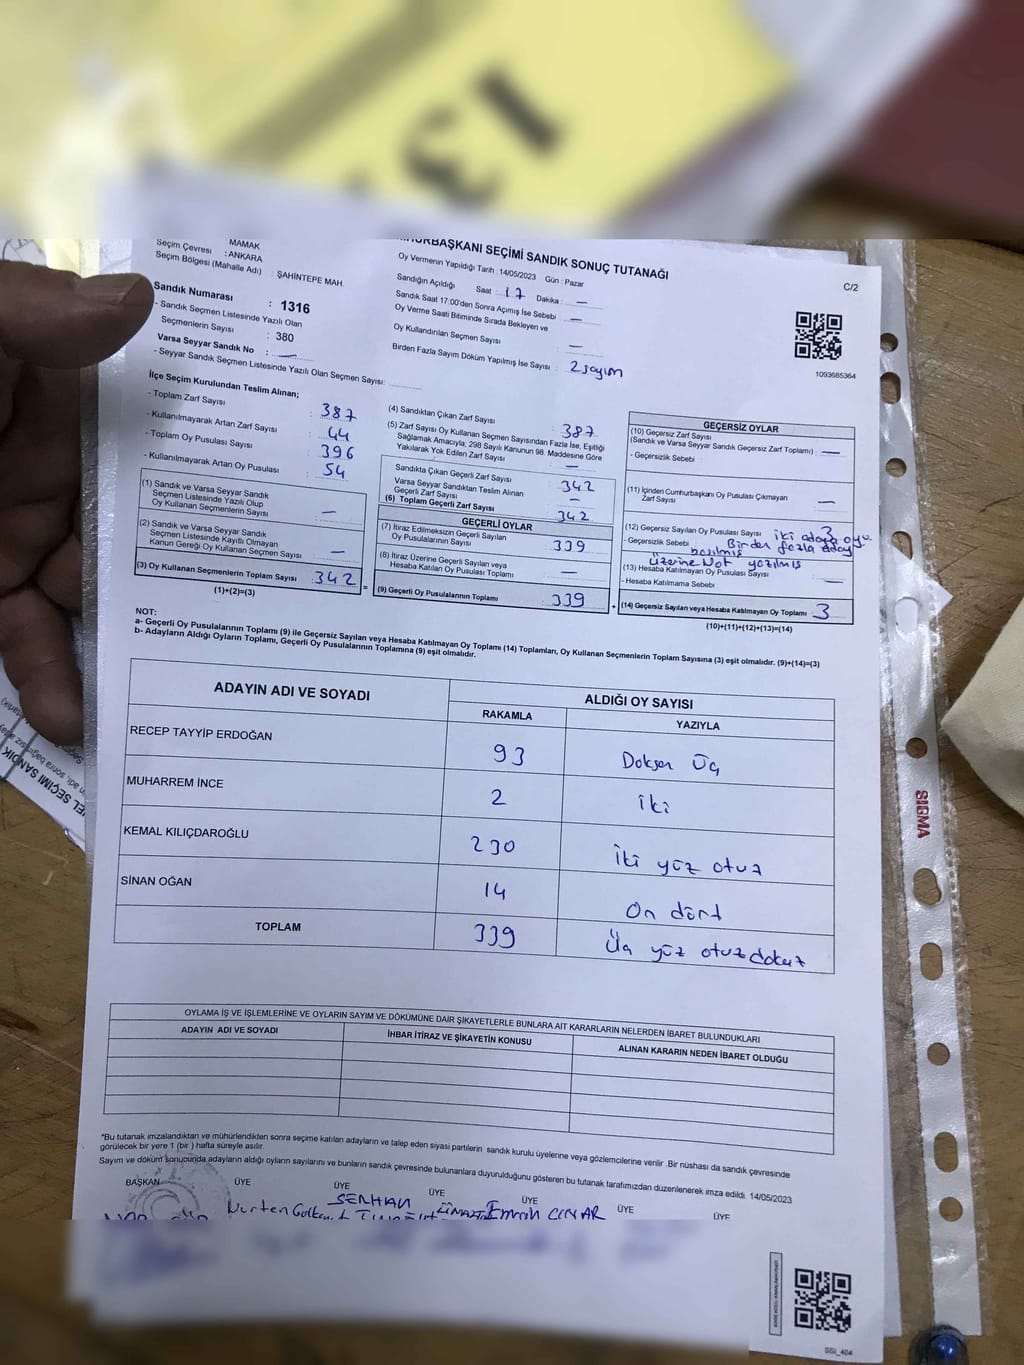 MAMAK
Seçim Çevresi : ANKARA
Seçim Bölgesi (Mahalle Adı) : ŞAHİNTEPE MAH.
Sandık Numarası : 1316
- Sandık Seçmen Listesinde Yazılı Olan
Seçmenlerin Sayısı : 380
Varsa Seyyar Sandık No : —
- Seyyar Sandık Seçmen Listesinde Yazılı Olan Seçmen Sayısı:
BAŞKANI SEÇİMİ SANDIK SONUÇ TUTANAĞI
Oy Vermenin Yapıldığı Tarih : 14/05/2023 Gün : Pazar
Sandığın Açıldığı Saat : 17 Dakika : —
Sandık Saat 17:00'den Sonra Açımış İse Sebebi : —
Oy Verme Saati Bitiminde Sırada Bekleyen ve
Oy Kullandırılan Seçmen Sayısı : —
Birden Fazla Sayım Döküm Yapılmış İse Sayısı : 2 sayım
C/2
1093685364
İlçe Seçim Kurulundan Teslim Alınan;
- Toplam Zarf Sayısı : 387
- Kullanılmayarak Artan Zarf Sayısı : 44
- Toplam Oy Pusulası Sayısı : 396
- Kullanılmayarak Artan Oy Pusulası : 54
(1) Sandık ve Varsa Seyyar Sandık
Seçmen Listesinde Yazılı Olup
Oy Kullanan Seçmenlerin Sayısı : —
(2) Sandık ve Varsa Seyyar Sandık
Seçmen Listesinde Kayıtlı Olmayan
Kanun Gereği Oy Kullanan Seçmen Sayısı : —
(3) Oy Kullanan Seçmenlerin Toplam Sayısı : 342 =
(1)+(2)=(3)
(4) Sandıktan Çıkan Zarf Sayısı : 387
(5) Zarf Sayısı Oy Kullanan Seçmen Sayısından Fazla İse, Eşitliği
Sağlamak Amacıyla, 298 Sayılı Kanunun 98. Maddesine Göre
Yakılarak Yok Edilen Zarf Sayısı : —
Sandıkta Çıkan Geçerli Zarf Sayısı : 342
Varsa Seyyar Sandıktan Teslim Alınan
Geçerli Zarf Sayısı : —
(6) Toplam Geçerli Zarf Sayısı : 342
GEÇERLİ OYLAR
(7) İtiraz Edilmeksizin Geçerli Sayılan
Oy Pusulalarının Sayısı : 339
(8) İtiraz Üzerine Geçerli Sayılan veya
Hesaba Katılan Oy Pusulası Toplamı : —
(9) Geçerli Oy Pusulalarının Toplamı : 339 +
GEÇERSİZ OYLAR
(10) Geçersiz Zarf Sayısı
(Sandık ve Varsa Seyyar Sandık Geçersiz Zarf Toplamı) : —
- Geçersizlik Sebebi
(11) İçinden Cumhurbaşkanı Oy Pusulası Çıkmayan
Zarf Sayısı : —
(12) Geçersiz Sayılan Oy Pusulası Sayısı : 3
- Geçersizlik Sebebi iki adaya oy
basılmış Birden fazla aday
üzerine Not yazılmış
(13) Hesaba Katılmayan Oy Pusulası Sayısı : —
- Hesaba Katılmama Sebebi
(14) Geçersiz Sayılan veya Hesaba Katılmayan Oy Toplamı : 3
(10)+(11)+(12)+(13)=(14)
NOT:
a- Geçerli Oy Pusulalarının Toplamı (9) ile Geçersiz Sayılan veya Hesaba Katılmayan Oy Toplamı (14) Toplamları, Oy Kullanan Seçmenlerin Toplam Sayısına (3) eşit olmalıdır. (9)+(14)=(3)
b- Adayların Aldığı Oyların Toplamı, Geçerli Oy Pusulalarının Toplamına (9) eşit olmalıdır.
ADAYIN ADI VE SOYADI ALDIĞI OY SAYISI
RAKAMLA YAZIYLA
RECEP TAYYİP ERDOĞAN 93 Doksan Üç
MUHARREM İNCE 2 iki
KEMAL KILIÇDAROĞLU 230 iki yüz otuz
SİNAN OĞAN 14 On dört
TOPLAM 339 Üç yüz otuz dokuz
OYLAMA İŞ VE İŞLEMLERİNE VE OYLARIN SAYIM VE DÖKÜMÜNE DAİR ŞİKAYETLERLE BUNLARA AİT KARARLARIN NELERDEN İBARET BULUNDUKLARI
ADAYIN ADI VE SOYADI İHBAR İTİRAZ VE ŞİKAYETİN KONUSU ALINAN KARARIN NEDEN İBARET OLDUĞU
*Bu tutanak imzalandıktan ve mühürlendikten sonra seçime katılan adayların ve talep eden siyasi partilerin sandık kurulu üyelerine veya gözlemcilerine verilir .Bir nüshası da sandık çevresinde
görülecek bir yere 1 (bir ) hafta süreyle asılır.
Sayım ve döküm sonucunda adayların aldığı oyların sayılarını ve bunların sandık çevresinde bulunanlara duyurulduğunu gösteren bu tutanak tarafımızdan düzenlenerek imza edildi. 14/05/2023
BAŞKAN ÜYE ÜYE ÜYE ÜYE ÜYE ÜYE
Nurten SERHAN Emrah ÇINAR
SIGMA